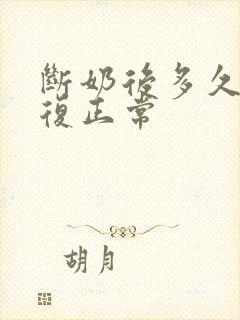 斷奶後多久
復正常
胡月